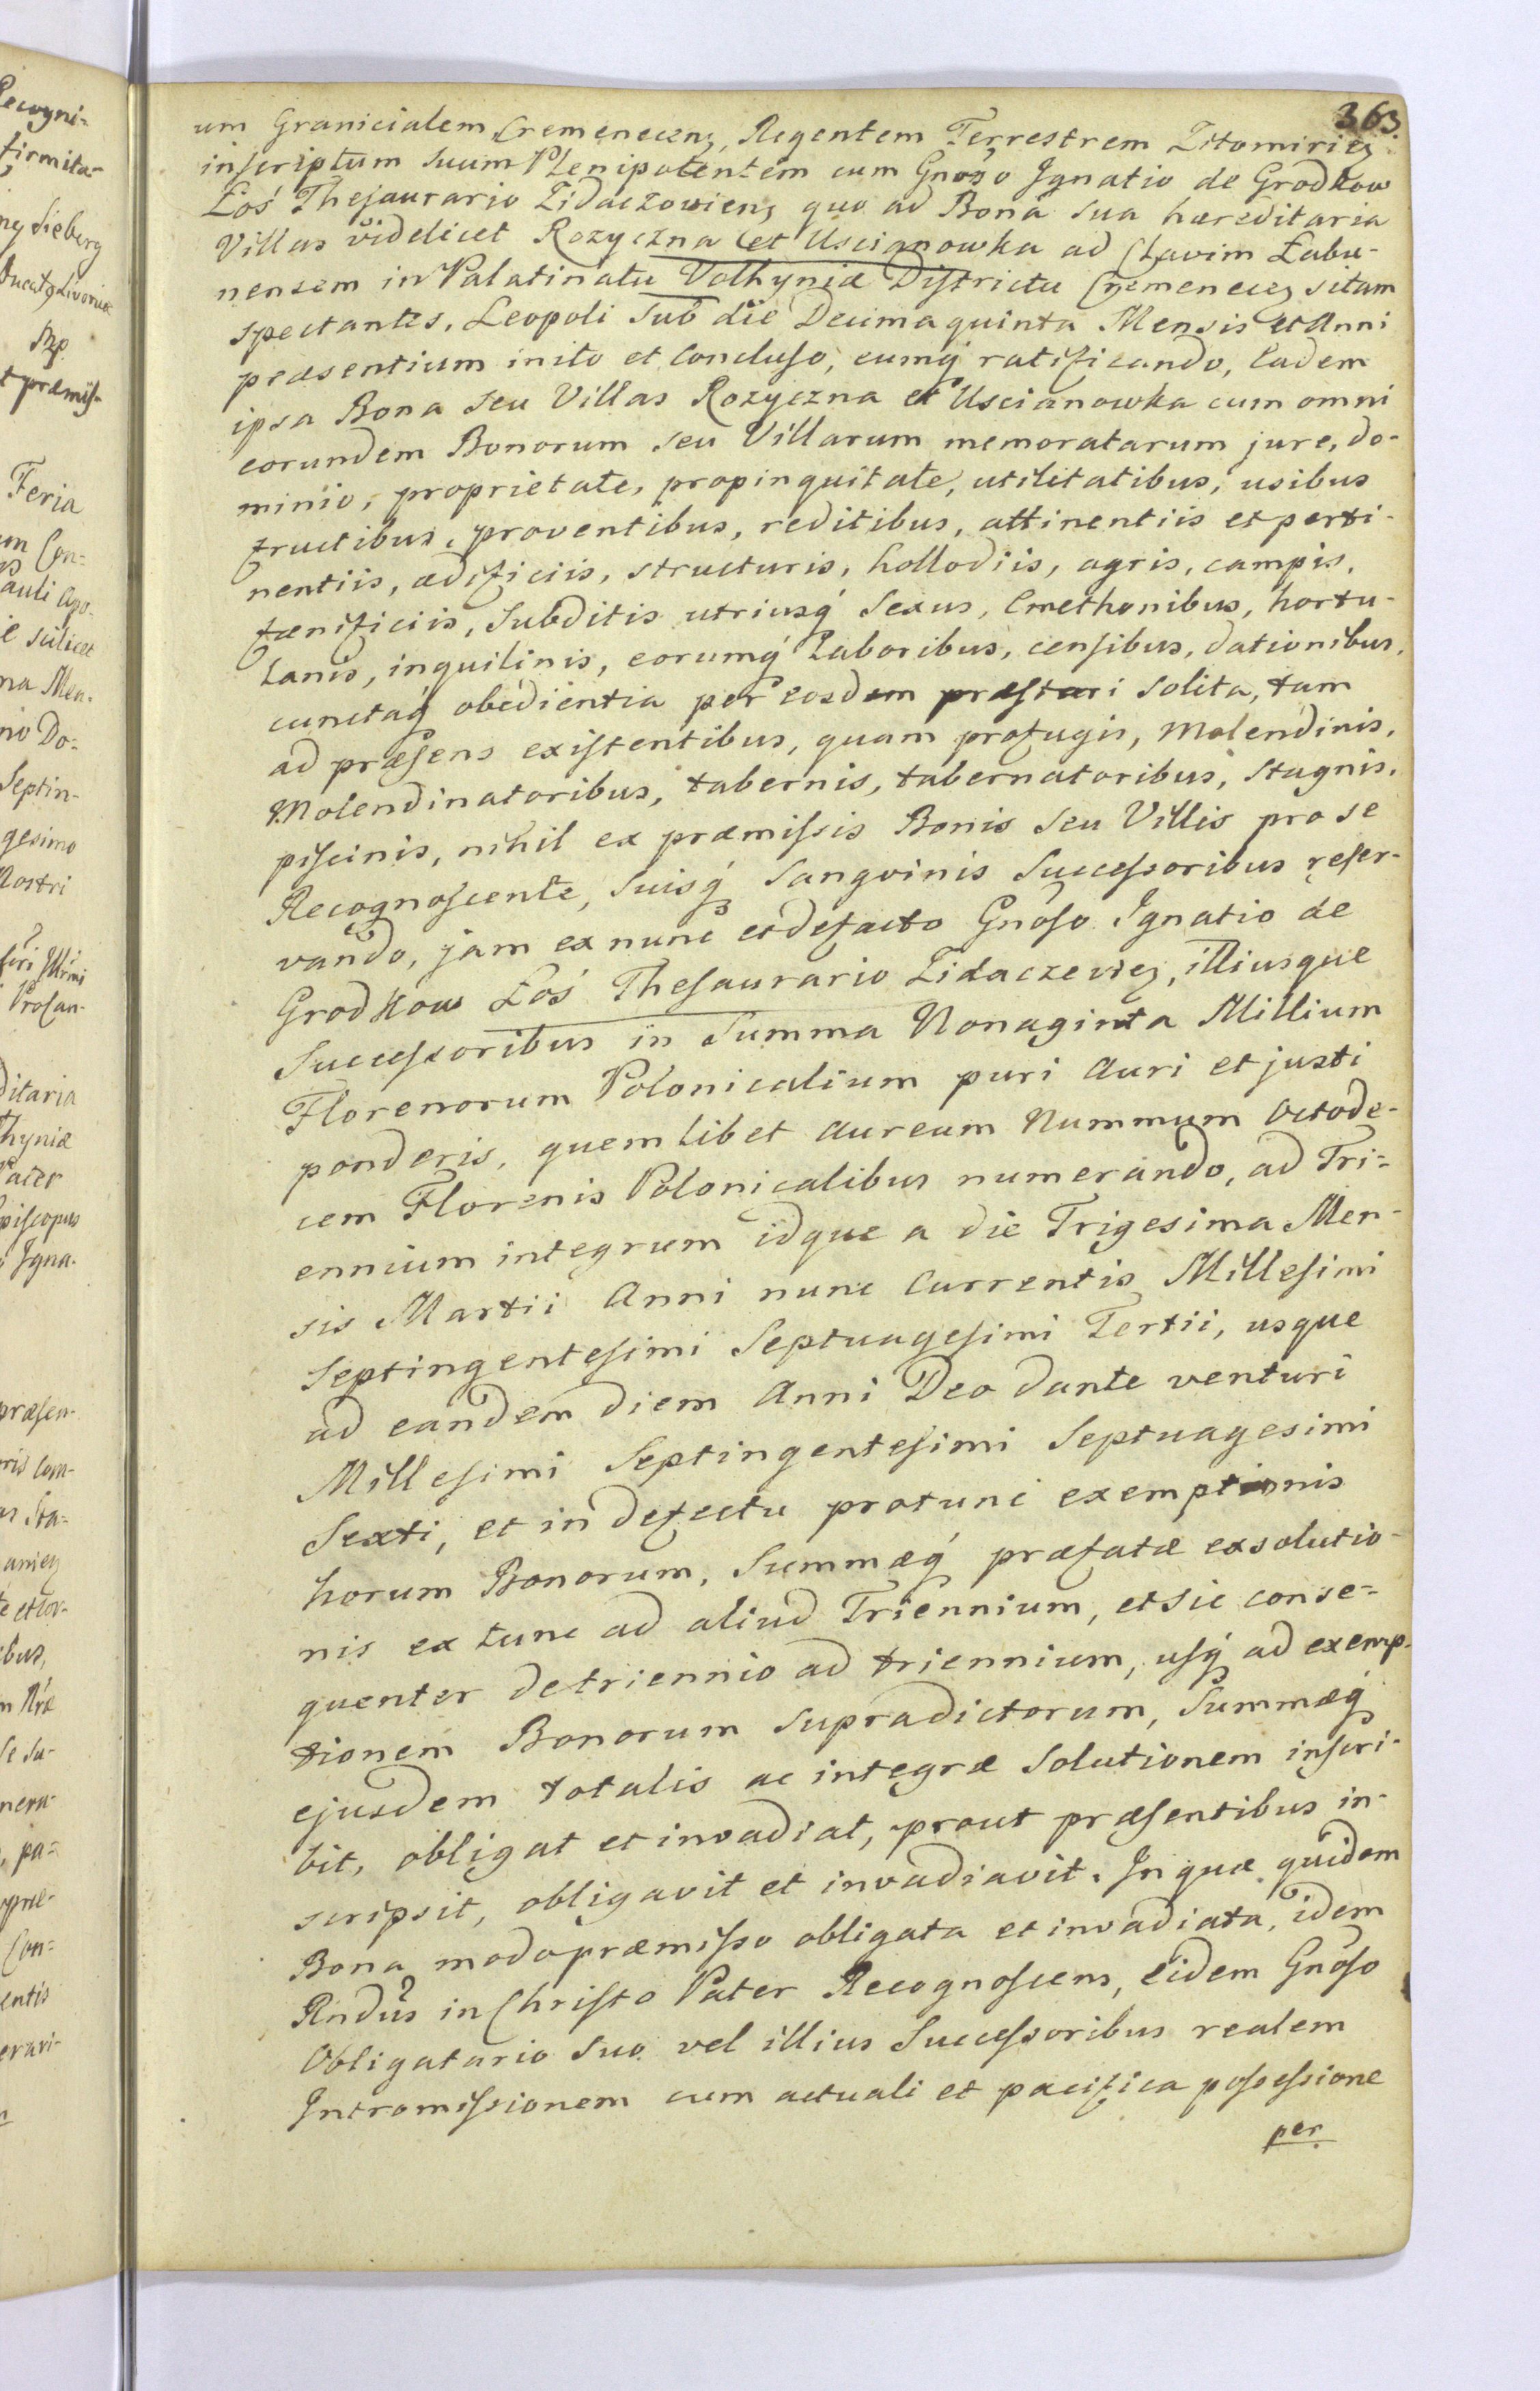 363
um Granicialem Cremenecens, Regentem Terrestrem Zitomiriens
inscriptum suum Plenipotentem cum Gnoso Ignatio de Grodkow
Łoś Thesaurario Zidaczowiens quo ad Bona sua hæreditaria
Villas videlicet Rozyczna et Uscianowka ad Clavim Łabu-
nensem in Palatinatu Volhyniæ Districtu Cremeneces sitam
spectantes, Leopoli sub die Decima quinta Mensis et Anni
præsentium inito et concluso, eumq́ ratificando, Eadem
ipsa Bona seu Villas Rozyczna et Uscianowka cum omni
eorundem Bonorum seu Villarum memoratarum jure, do-
minio, proprietate, propinquitate, utilitatibus, usibus
fructibus, proventibus, reditibus, attinentiis et perti-
nentiis, ædificiis, structuris, hollodiis, agris, campis,
fœnificiis, Subditis utriusq́ Sexus, Cmethonibus, hortu-
lanis, inquilinis, eorumq́ Laboribus, censibus, dationibus,
cunctaq́ obedientia per eosdem præstari solita, tam
ad præsens existentibus, quam profugis, Molendinis,
Molendinatoribus, tabernis, tabernatoribus, stagnis,
piscinis, nihil ex præmissis Bonis seu Villis pro se
Recognoscente, suisq́ Sangvinis Successoribus reser-
vando, jam ex nunc et de facto Gnoso Ignatio de
Grodkow Łoś Thesaurario Zidaczewieꝫ, illiusque
Successoribus in Summa Nonaginta Millium
Florenorum Polonicalium puri Auri et justi
ponderis, quemlibet Aureum Nummum Octode-
cem Florenis Polonicalibus numerando, ad Tri-
ennium integrum idque a die Trigesima Men-
sis Martii Anni nunc Currentis Millesimi
Septingentesimi Septuagesimi Tertii, usque
ad eandem diem Anni Deo dante venturi
Millesimi Septingentesimi Septuagesimi
Sexti, et in defectu protunc exemptionis
horum Bonorum, Summæq́ præfatæ exsolutio-
nis ex tunc ad aliud Triennium, et sic conse-
quenter de triennio ad triennium, usq́ ad exemp-
tionem Bonorum supradictorum, Summæq́
ejusdem totalis ac integræ Solutionem inscri-
bit, obligat et invadiat, prout præsentibus in-
scripsit, obligavit et invadiavit. In quæ quidem
Bona modo præmisso obligata et invadiata, idem
Rndus in Christo Pater Recognoscens, eidem Gnoso
Obligatario suo vel illius Successoribus realem
Intromissionem cum actuali et pacifica possessione
per